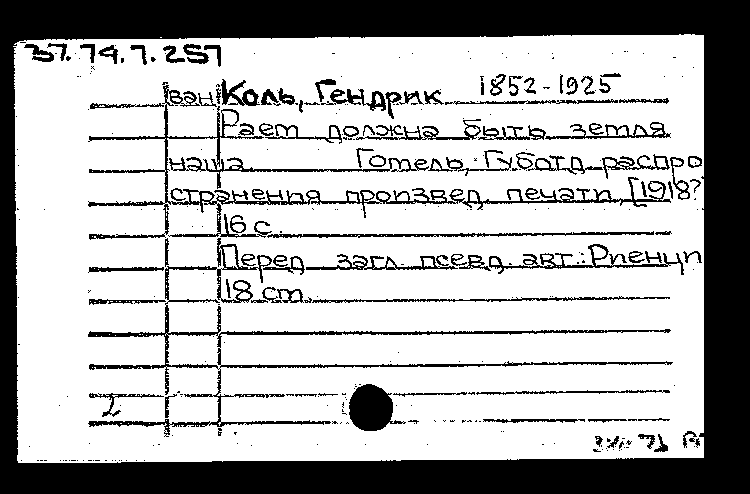 37.74.7.257
ван Коль, Гендрик 1852-1925
Рает должна быть земля
наша. Гомель, Губотд. распро
странения произвед. печати, [1918?
16 с.
Перед загл. псевд. авт.: Риенци
18 cm.
2